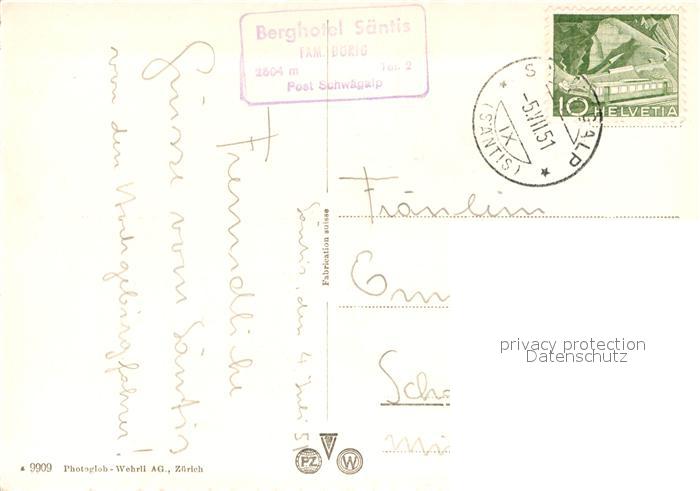 Berghotel Säntis
FAM. DÖRIG
2504 m Tel. 2
Post Schwägalp
10 HELVETIA
-5.VII.51
IX
(SÄNTIS)
Freundliche
Grüsse vom Säntis
von den Hochgebirgsfahrer!
Säntis, den 4. Juli 51
Fabrication suisse
Fräulein
privacy protection
Datenschutz
PZ W
9909 Photoglob-Wehrli AG., Zürich